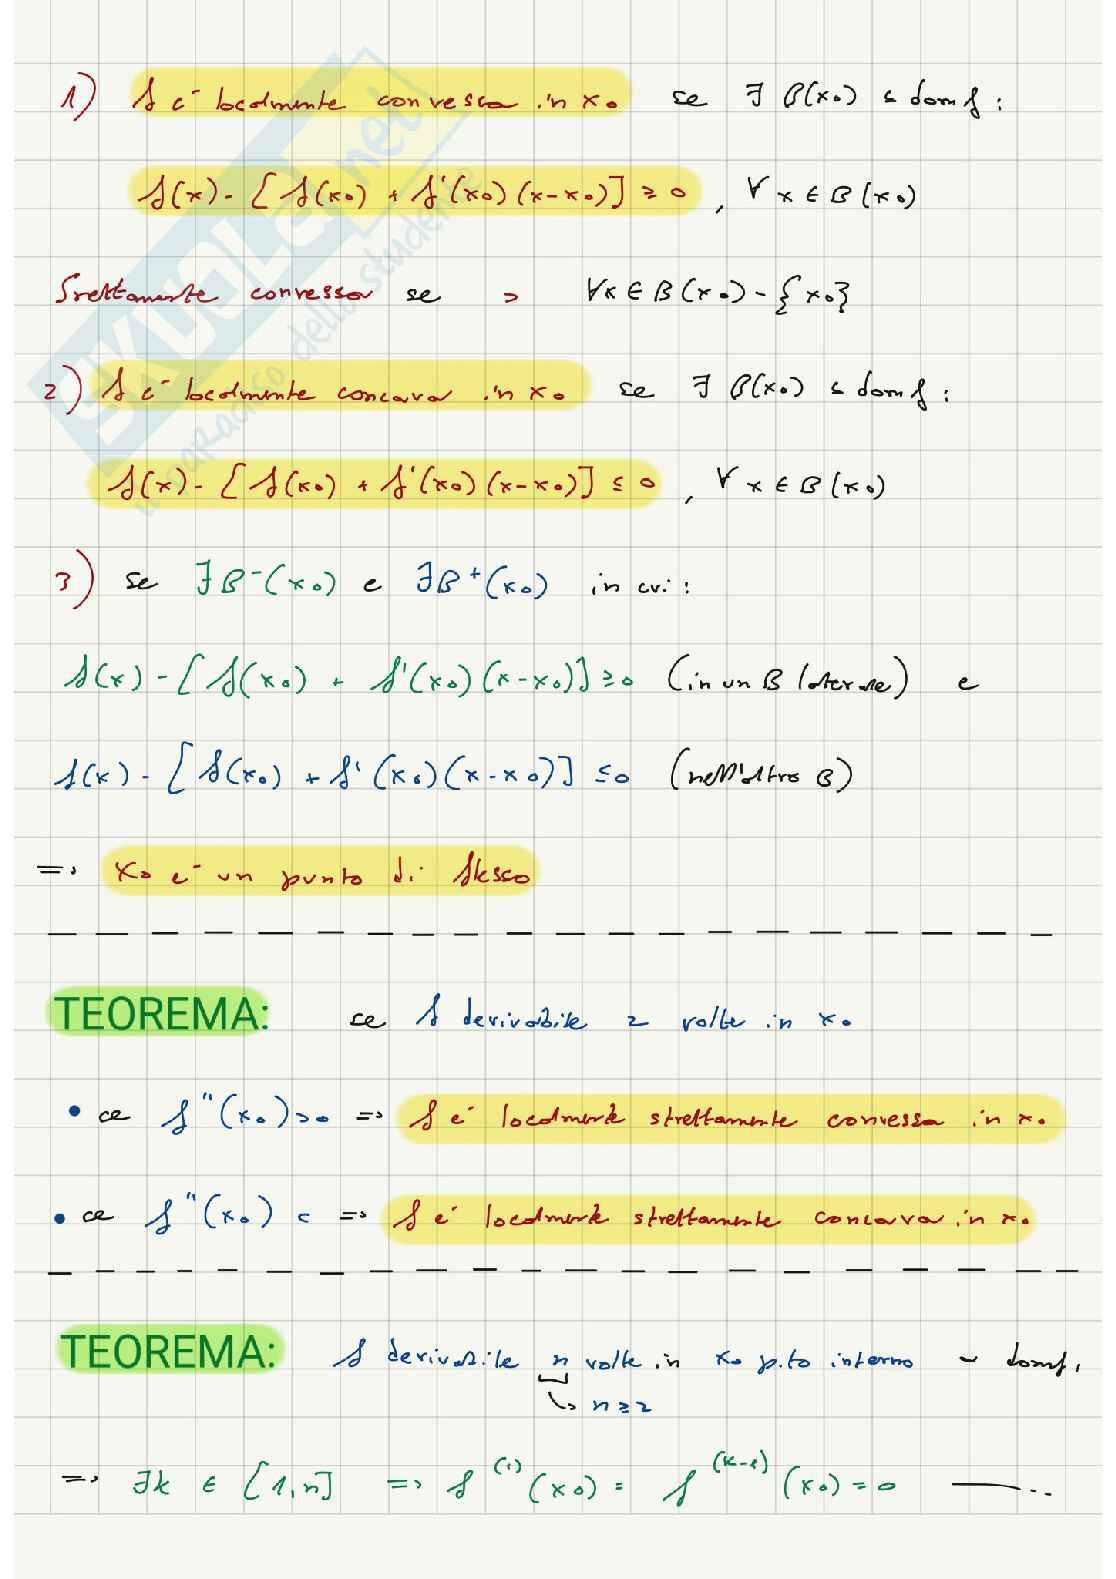 1) f é localmente convessa in x₀ se ∃ B(x₀) ⊆ dom f :
f(x) - [ f(x₀) + f'(x₀) (x-x₀)] ≥ 0 , ∀ x ∈ B(x₀)
Srettamente convessa se > ∀x ∈ B(x₀) - {x₀}
2) f é localmente concava in x₀ se ∃ B(x₀) ⊆ dom f :
f(x) - [ f(x₀) + f'(x₀) (x-x₀)] ≤ 0 , ∀ x ∈ B(x₀)
3) se ∃ B⁻(x₀) e ∃ B⁺(x₀) in cui :
f(x) - [ f(x₀) + f'(x₀) (x-x₀)] ≥ 0 (in un B laterale) e
f(x) - [ f(x₀) + f'(x₀) (x-x₀)] ≤ 0 (nell'altro B)
=> x₀ é un punto di flesso
TEOREMA: se f derivabile 2 volte in x₀
• se f"(x₀) > 0 => f é localmente strettamente convessa in x₀
• se f"(x₀) < => f é localmente strettamente concava in x₀
TEOREMA: f derivabile n volte in x₀ p.to interno ~ domf,
↳ n ≥ 2
=> ∃k ∈ [1,n] => f⁽¹⁾(x₀) = f⁽ᵏ⁻¹⁾(x₀) = 0 —— ..
SKUOLA.net
il paradiso dello studente